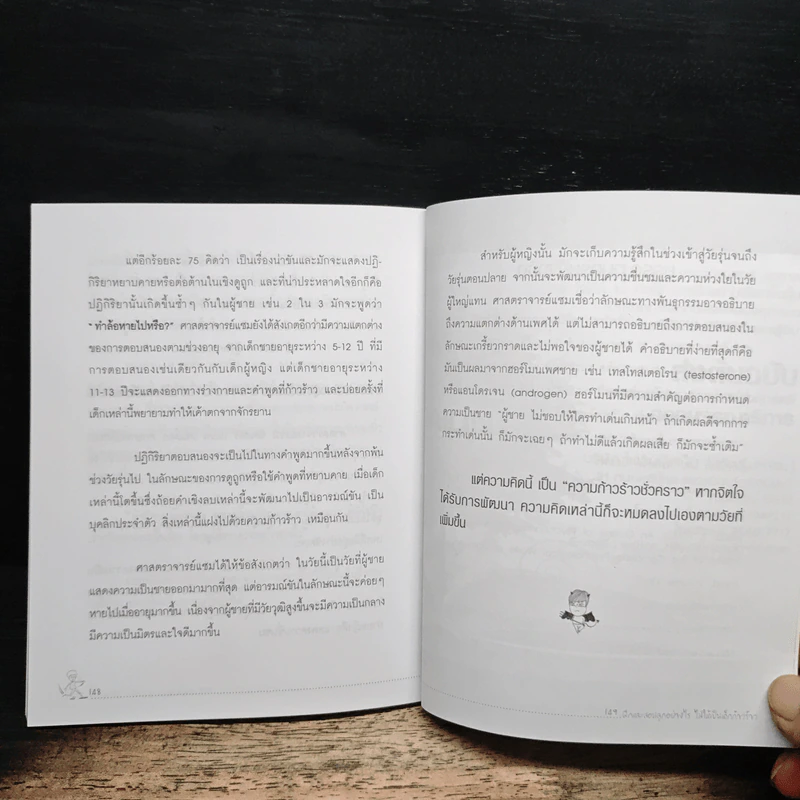 แต่อีกร้อยละ 75 คิดว่า เป็นเรื่องน่าขันและมักจะแสดงปฏิ-
กิริยาหยาบคายหรือต่อต้านในเชิงดูถูก และที่น่าประหลาดใจอีกก็คือ
ปฏิกิริยานั้นเกิดขึ้นซ้ำๆ กันในผู้ชาย เช่น 2 ใน 3 มักจะพูดว่า
"ทำล้อหายไปหรือ?" ศาสตราจารย์แซมยังได้สังเกตอีกว่ามีความแตกต่าง
ของการตอบสนองตามช่วงอายุ จากเด็กชายอายุระหว่าง 5-12 ปี ที่มี
การตอบสนองเช่นเดียวกันกับเด็กผู้หญิง แต่เด็กชายอายุระหว่าง
11-13 ปีจะแสดงออกทางร่างกายและคำพูดที่ก้าวร้าว และบ่อยครั้งที่
เด็กเหล่านี้พยายามทำให้เค้าตกจากจักรยาน
ปฏิกิริยาตอบสนองจะเป็นไปในทางคำพูดมากขึ้นหลังจากพ้น
ช่วงวัยรุ่นไป ในลักษณะของการดูถูกหรือใช้คำพูดที่หยาบคาย เมื่อเด็ก
เหล่านี้โตขึ้นซึ่งถ้อยคำเชิงลบเหล่านี้จะพัฒนาไปเป็นอารมณ์ขัน เป็น
บุคลิกประจำตัว สิ่งเหล่านี้แฝงไปด้วยความก้าวร้าว เหมือนกัน
ศาสตราจารย์แซมได้ให้ข้อสังเกตว่า ในวัยนี้เป็นวัยที่ผู้ชาย
แสดงความเป็นชายออกมามากที่สุด แต่อารมณ์ขันในลักษณะนี้จะค่อยๆ
หายไปเมื่ออายุมากขึ้น เนื่องจากผู้ชายที่มีวัยวุฒิสูงขึ้นจะมีความเป็นกลาง
มีความเป็นมิตรและใจดีมากขึ้น
148
สำหรับผู้หญิงนั้น มักจะเก็บความรู้สึกในช่วงเข้าสู่วัยรุ่นจนถึง
วัยรุ่นตอนปลาย จากนั้นจะพัฒนาเป็นความชื่นชมและความห่วงใยในวัย
ผู้ใหญ่แทน ศาสตราจารย์แซมเชื่อว่าลักษณะทางพันธุกรรมอาจอธิบาย
ถึงความแตกต่างด้านเพศได้ แต่ไม่สามารถอธิบายถึงการตอบสนองใน
ลักษณะเกรี้ยวกราดและไม่พอใจของผู้ชายได้ คำอธิบายที่ง่ายที่สุดก็คือ
มันเป็นผลมาจากฮอร์โมนเพศชาย เช่น เทสโทสเตอโรน (testosterone)
หรือแอนโดรเจน (androgen) ฮอร์โมนที่มีความสำคัญต่อการกำหนด
ความเป็นชาย "ผู้ชาย ไม่ชอบให้ใครทำเด่นเกินหน้า ถ้าเกิดผลดีจากการ
กระทำเด่นนั้น ก็มักจะเฉยๆ ถ้าทำไม่ดีแล้วเกิดผลเสีย ก็มักจะซ้ำเติม"
แต่ความคิดนี้ เป็น "ความก้าวร้าวชั่วคราว" หากจิตใจ
ได้รับการพัฒนา ความคิดเหล่านี้ก็จะหมดลงไปเองตามวัยที่
เพิ่มขึ้น